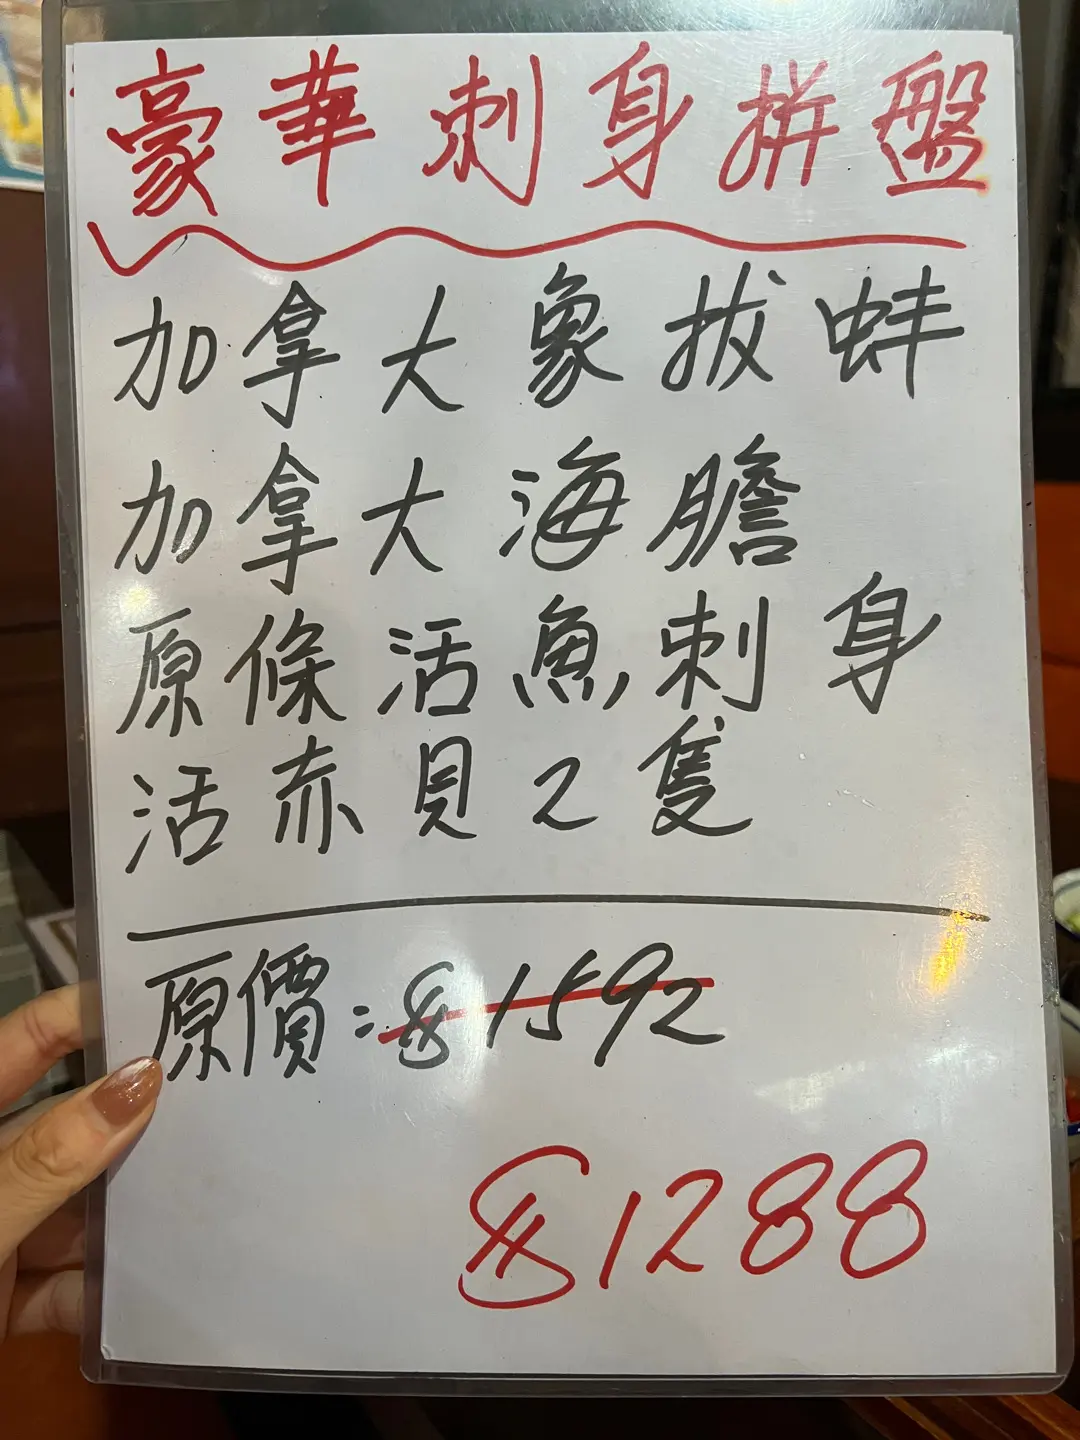 豪華刺身拼盤
加拿大象拔蚌
加拿大海膽
原條活魚刺身
活赤貝2隻
原價:$1592
$1288